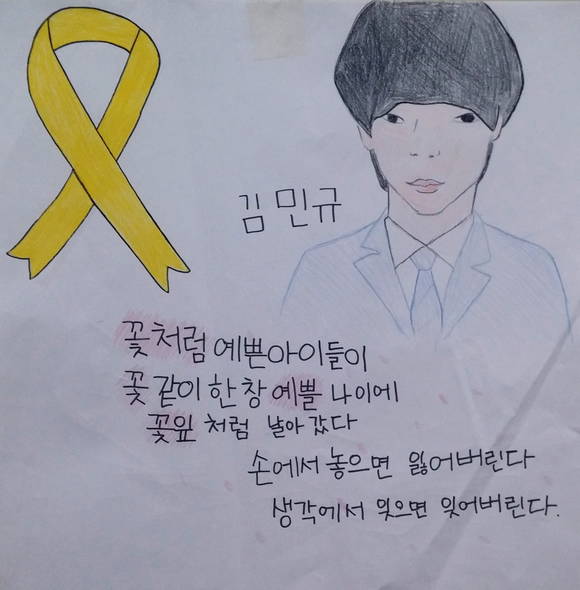 김민규
꽃처럼 예쁜아이들이
꽃같이 한창 예쁠 나이에
꽃잎 처럼 날아갔다
손에서 놓으면 잃어버린다
생각에서 잊으면 잊어버린다.